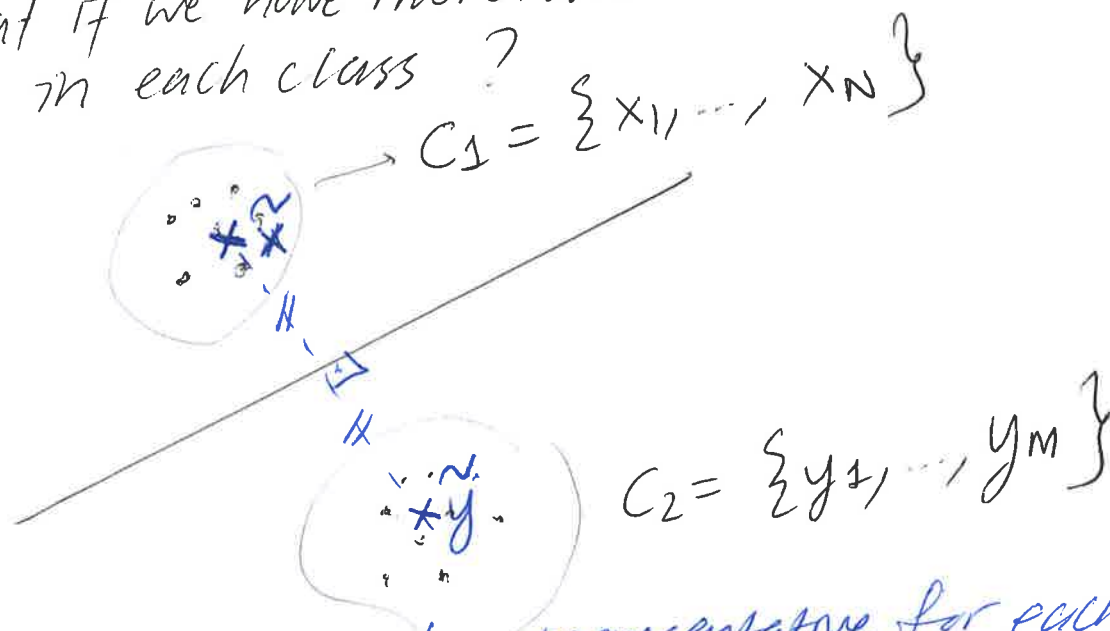 if we have
in each class ?
C1 = {x1, ..., xN}
x̃
ỹ
C2 = {y1, ..., yM}
for each